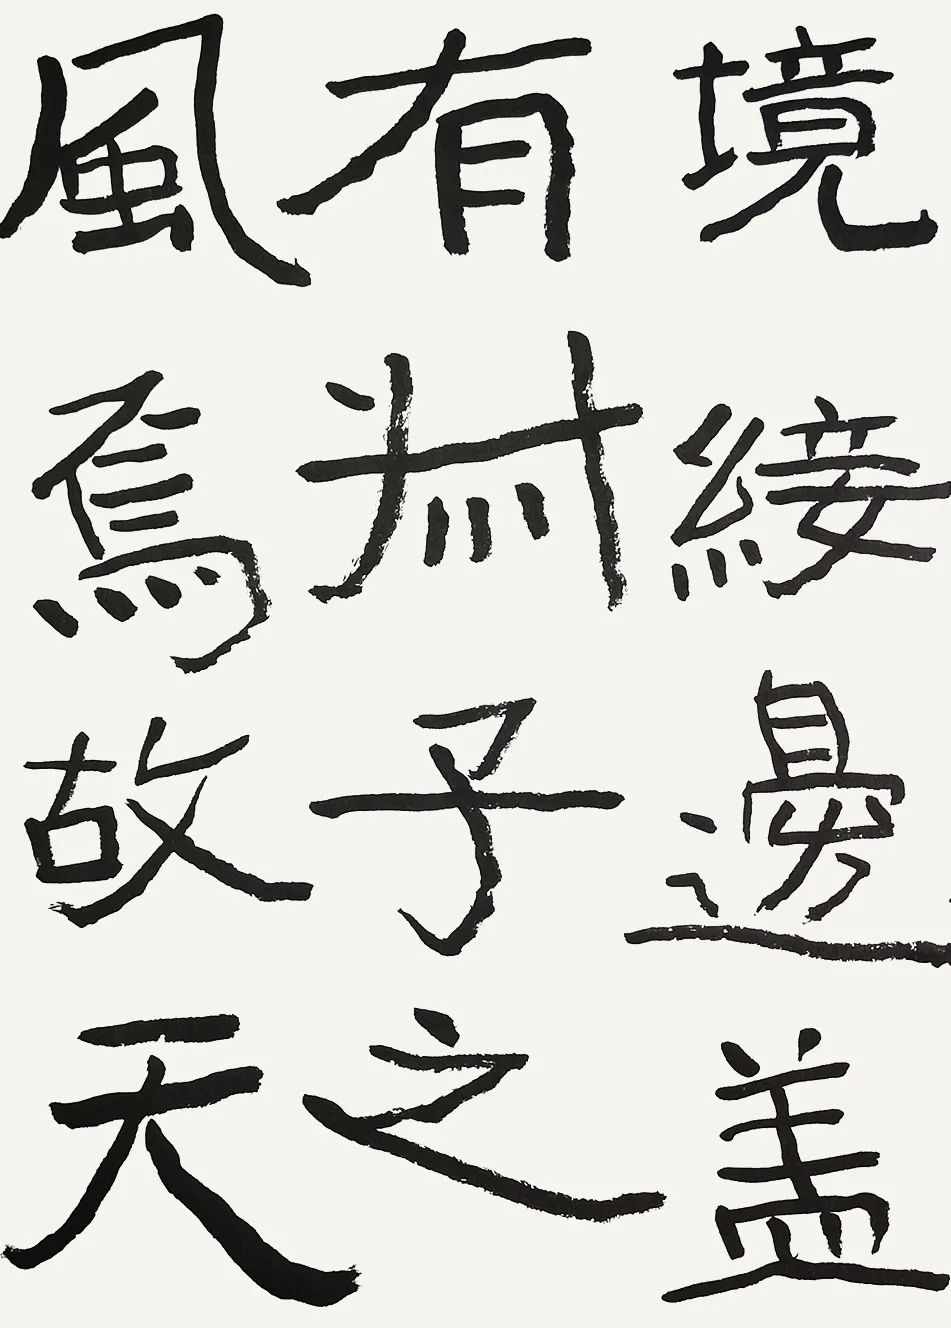 境緁邊盖
有子之
風焉故天